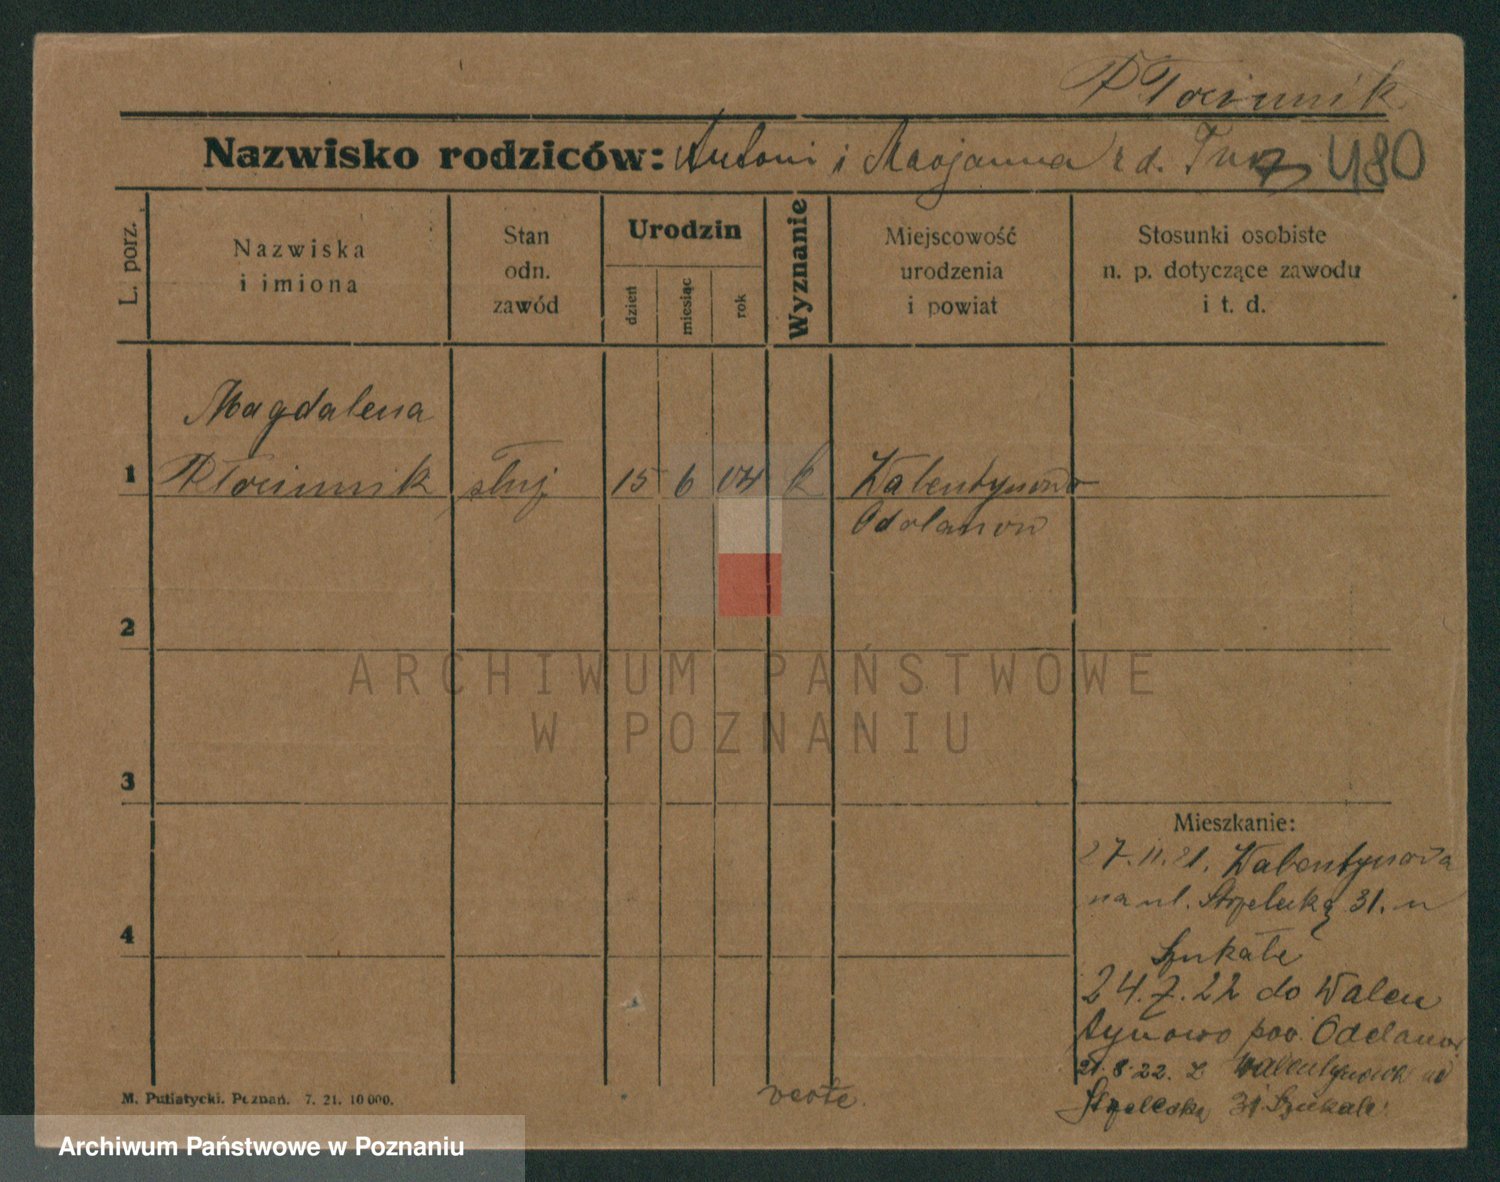 Płóciennik
Nazwisko rodziców: Antoni i Marjanna rd. 480
L. porz.
Nazwiska
i imiona
Stan
odn.
zawód
Urodzin
dzień
miesiąc
rok
Wyznanie
Miejscowość
urodzenia
i powiat
Stosunki osobiste
n. p. dotyczące zawodu
i t. d.
Magdalena
1 Płóciennik służ 15 6 04 k Walentynowo
Odolanow
2
3
4
Mieszkanie:
27.11.21. Walentynowa
na ul. Strzelecką 31. u
Szukałe
24.7.22 do Walen
tynowo pow. Odolanow
21.8.22. z Walentynowa na
Strzelecką 31 Szukale
verte.
M. Putiatycki. Poznań. 7. 21. 10 000.
ARCHIWUM PAŃSTWOWE
W POZNANIU
Archiwum Państwowe w Poznaniu